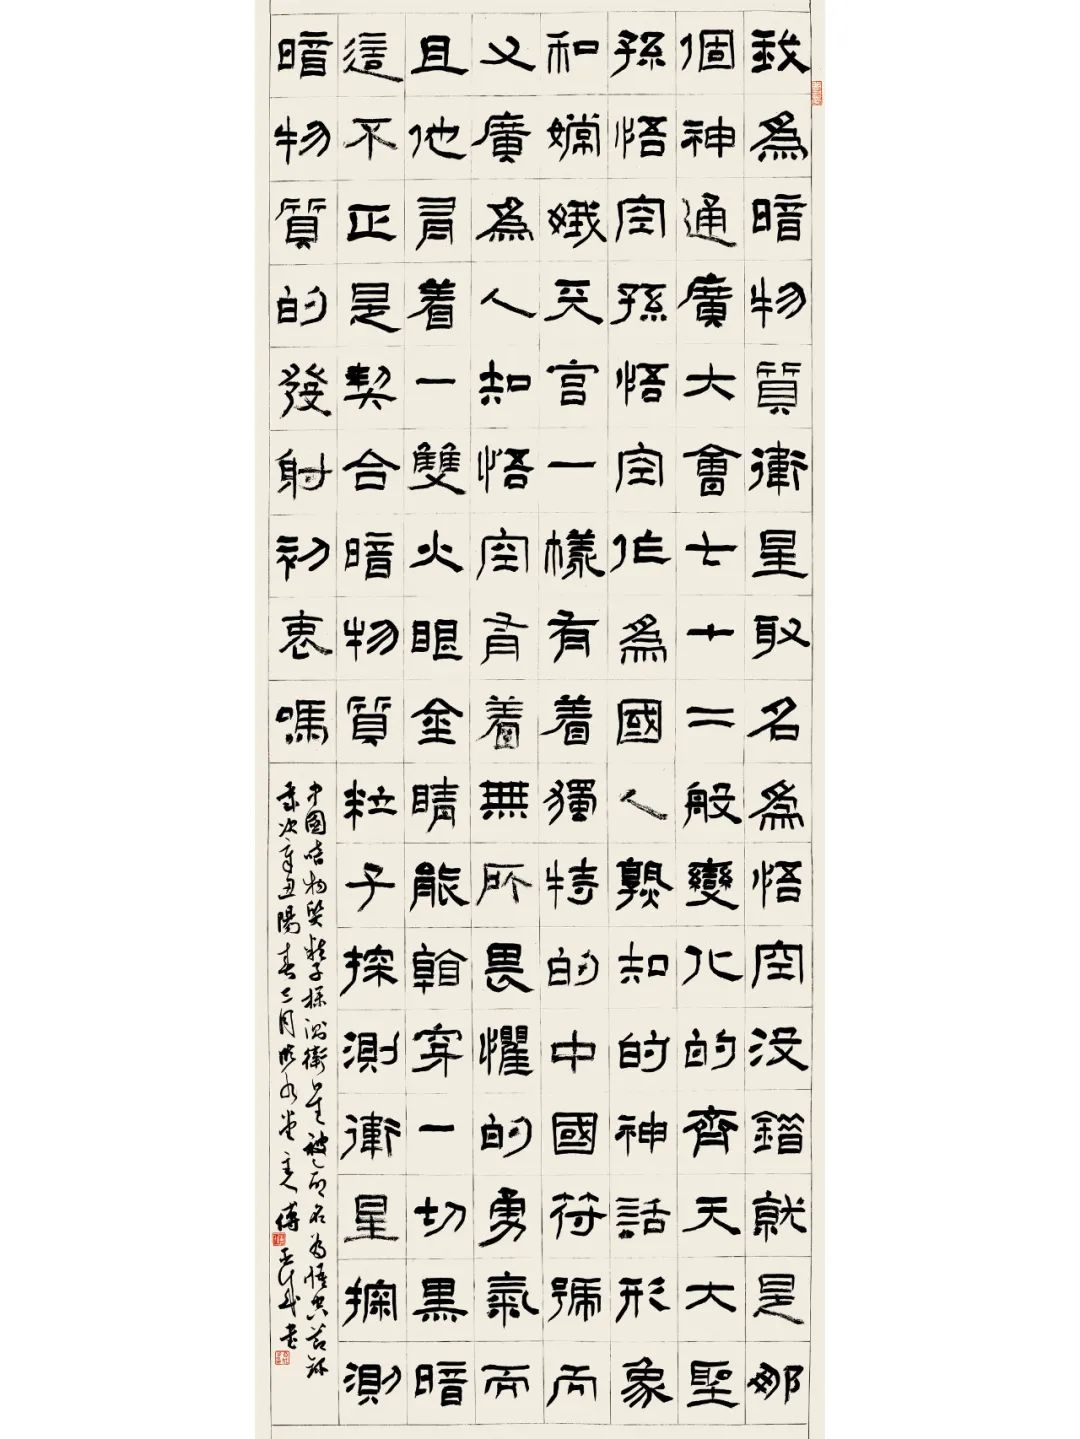 我為暗物質衛星取名為悟空没錯就是那
個神通廣大會七十二般變化的齊天大聖
孫悟空孫悟空作為國人熟知的神話形象
和嫦娥天宫一樣有着獨特的中國符號而
又廣為人知悟空有着無所畏懼的勇氣而
且他有着一雙火眼金睛能看穿一切黑暗
這不正是契合暗物質粒子探測衛星探測
暗物質的發射初衷嗎
中國暗物質粒子探測衛星被命名為悟空
歲次辛丑陽春三月堂主人傅亞成書